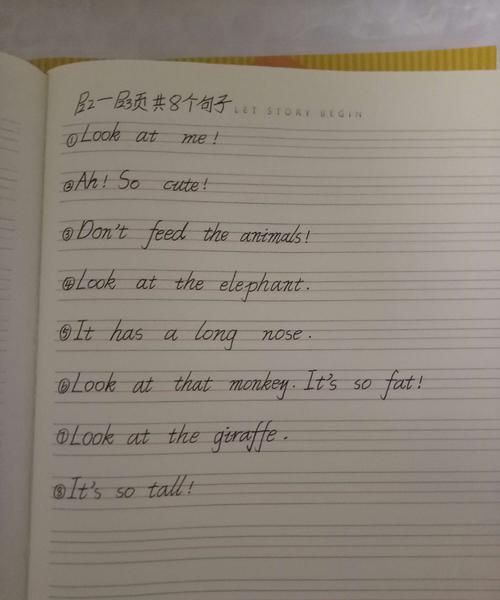 P2一P3页共8个句子
LET STORY BEGIN
①Look at me!
②Ah! So cute!
③Don't feed the animals!
④Look at the elephant.
⑤It has a long nose.
⑥Look at that monkey. It's so fat!
⑦Look at the giraffe.
⑧It's so tall!